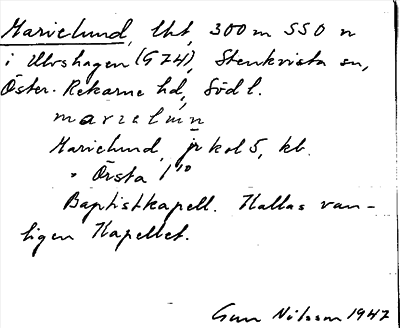 Marielund, lht, 300 m SSO n
i Ulvshagen (G 74), Stenkvista sn,
Öster-Rekarne hd, Södl.
marielun
Marielund, jr kol 5, kb.
" Örsta 1¹⁰
Baptistkapell. Kallas van-
ligen Kapellet.
Gun Nilsson 1947